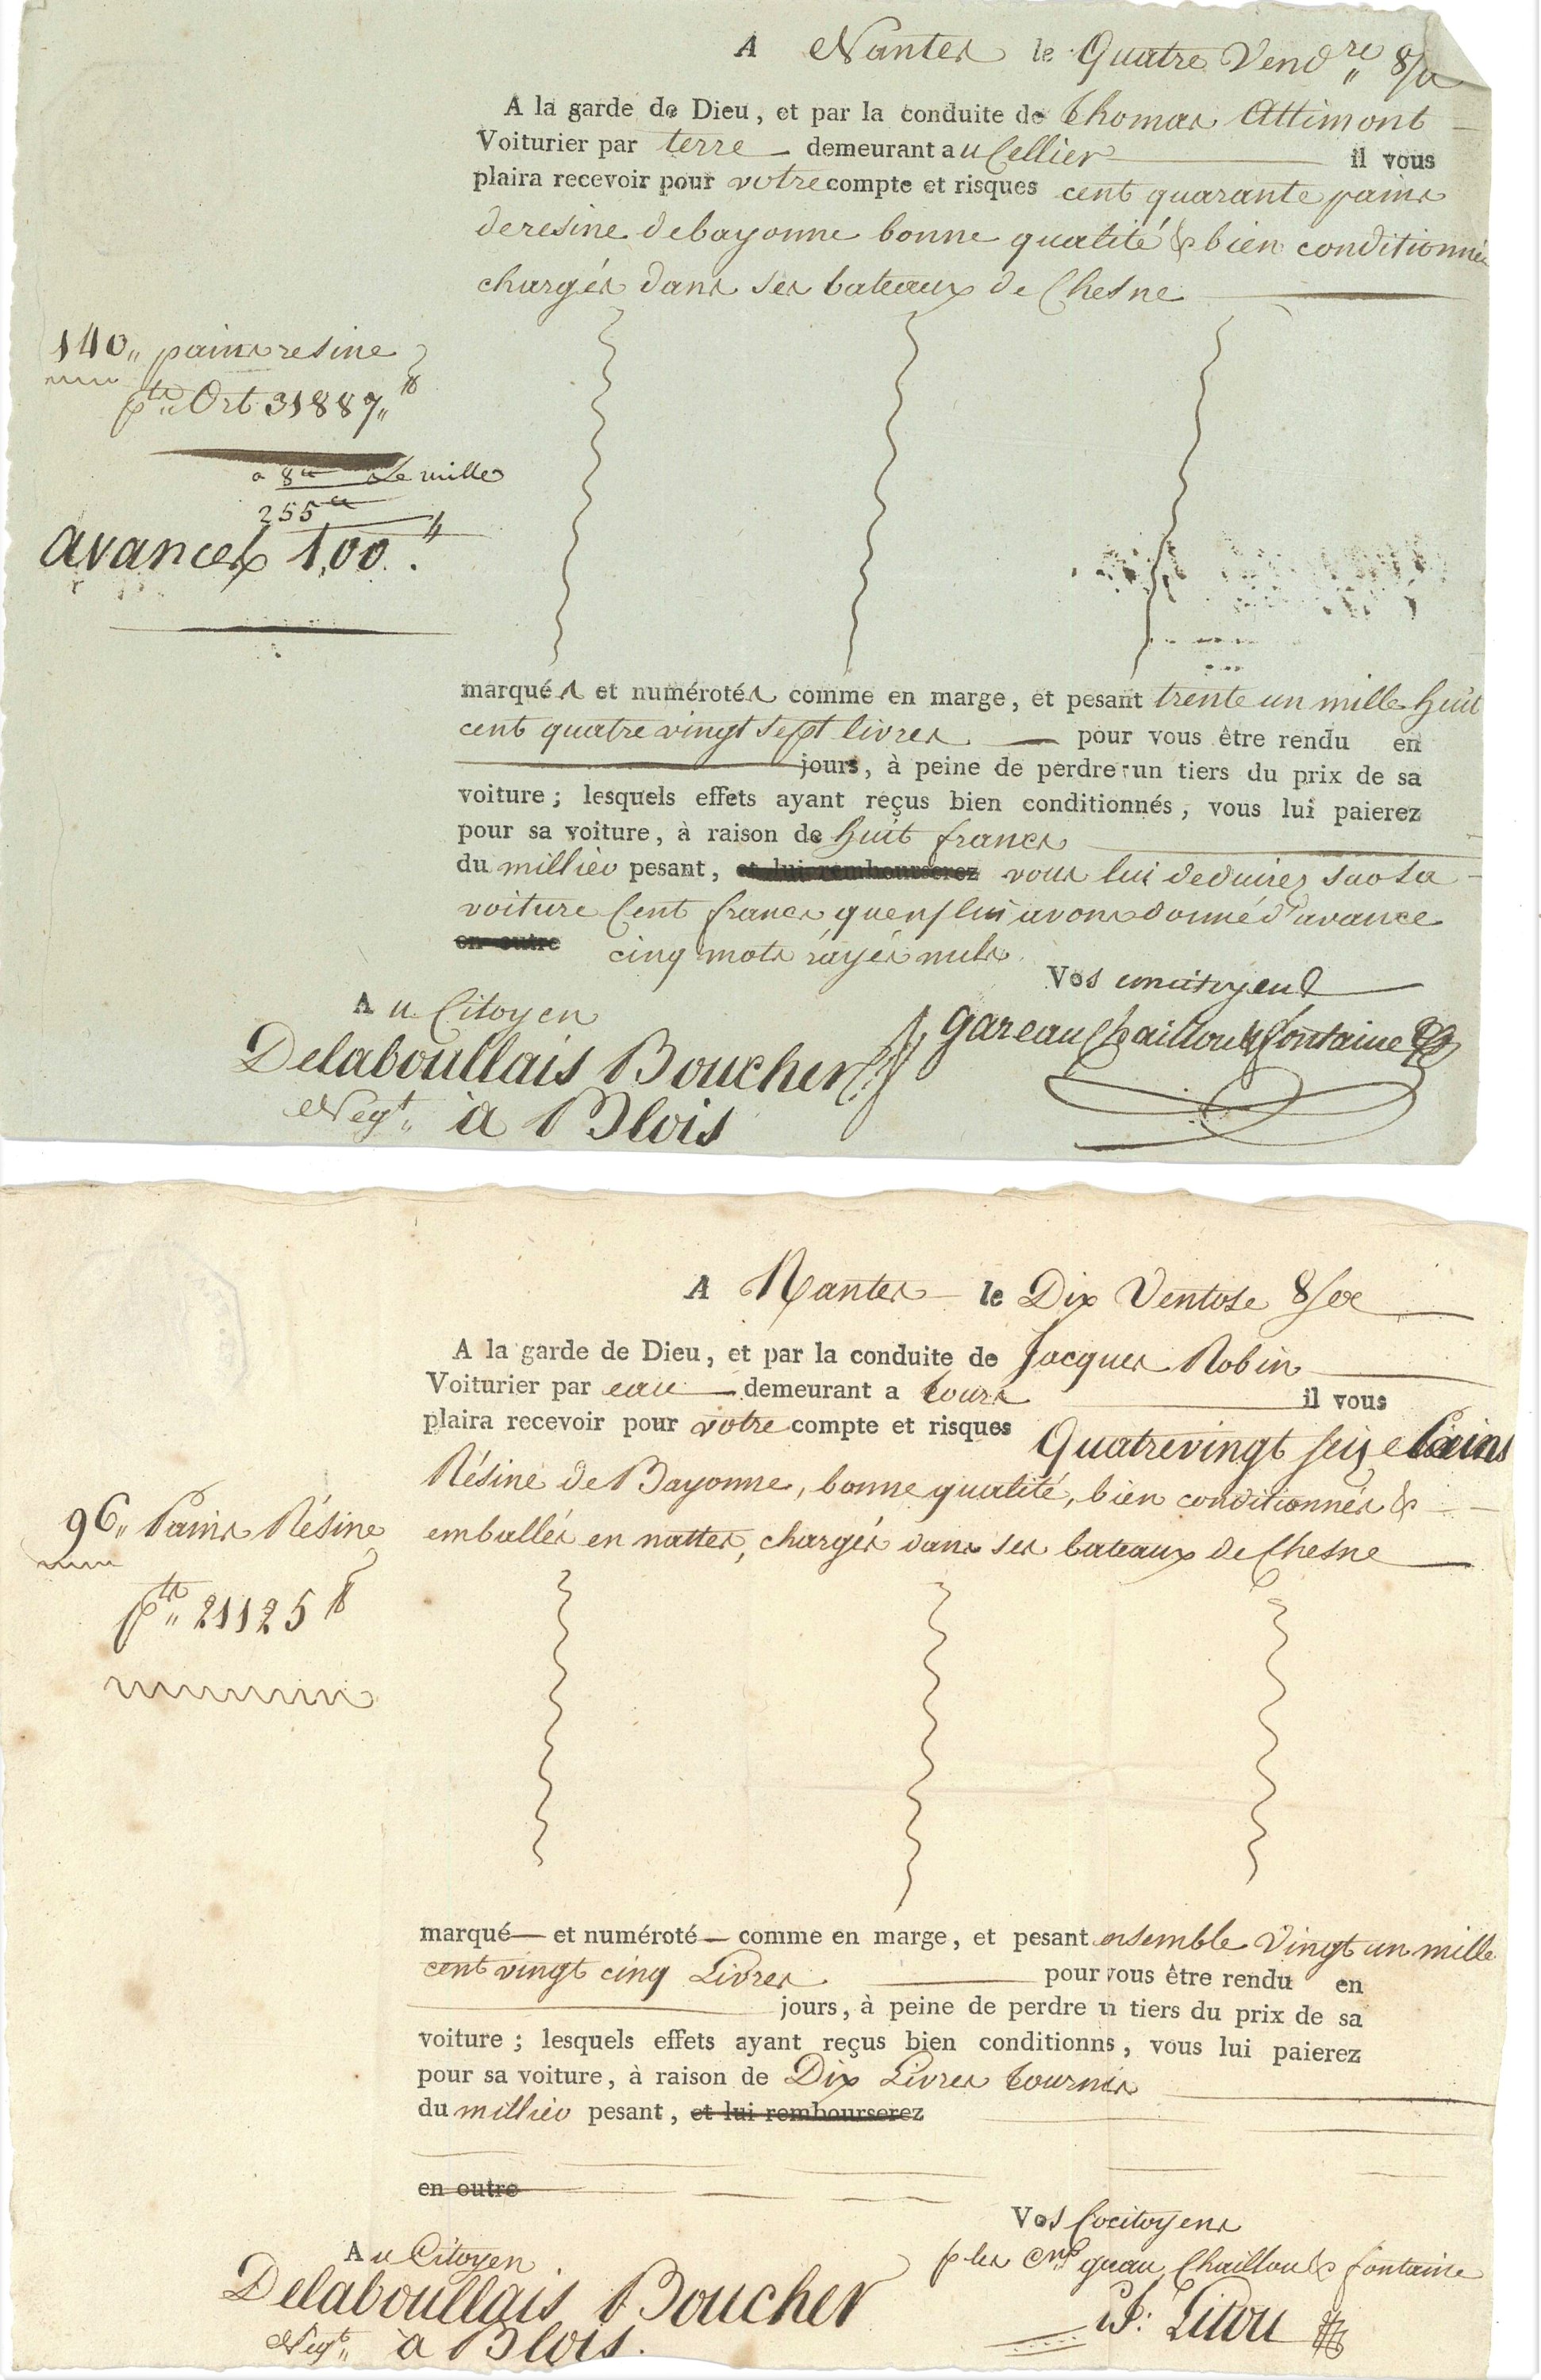 A Nantes le Quatre Vend.re 8/a
A la garde de Dieu, et par la conduite de Thomas Attimont
Voiturier par terre demeurant au Cellier il vous
plaira recevoir pour votre compte et risques cent quarante pains
de resine de bayonne bonne qualité & bien conditionnés
chargés dans ses bateaux de Chesne
140,, pains resine
p.ts Ort 31887,, lb
a 8 Le mille
255
avances 100.
marqués et numérotés comme en marge, et pesant trente un mille huit
cent quatre vingt sept livres pour vous être rendu en
jours, à peine de perdre un tiers du prix de sa
voiture; lesquels effets ayant reçus bien conditionnés, vous lui paierez
pour sa voiture, à raison de huit francs
du millier pesant, et lui rembourserez vous lui deduirez sur sa
voiture Cent francs que n/ lui avons donné d'avance
en outre cinq mots rayés nuls
Vos concitoyens
Au Citoyen
Delaboullais Boucher
gareau Chaillou & fontaine
Neg.t à Blois
A Nantes le Dix Ventose 8/e
A la garde de Dieu, et par la conduite de Jacques Robin
Voiturier par eau demeurant a tours il vous
plaira recevoir pour votre compte et risques Quatrevingt seize Pains
Résine de Bayonne, bonne qualité, bien conditionnés &
emballés en nattes, chargés dans ses bateaux de Chesne
96,, Pains Résine
p.ts 21125 lb
marqué et numéroté comme en marge, et pesant ensemble Vingt un mille
cent vingt cinq Livres pour vous être rendu en
jours, à peine de perdre u tiers du prix de sa
voiture; lesquels effets ayant reçus bien conditionns, vous lui paierez
pour sa voiture, à raison de Dix Livres tournois
du millier pesant, et lui rembourserez
en outre
Vos Cocitoyens
Au Citoyen
p les C.ns Chaillou & fontaine
Delaboullais Boucher
Neg.t à Blois.